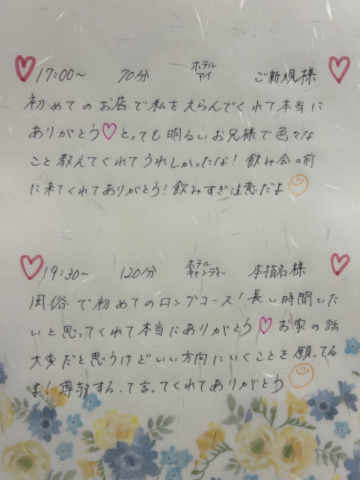 ♡17:00～ 70分 ホテル アイ ご新規様
初めてのお店で私をえらんでくれて本当に
ありがとう♡とっても明るいお兄様で色々な
こと教えてくれてうれしかったな！飲み会の前
に来てくれてありがとう！飲みすぎ注意だよ
♡19:30～ 120分 ホテル キャンディー 本指名様
風俗で初めてのロングコース！長い時間した
いと思ってくれて本当にありがとう♡お家の話
大変だと思うけどいい方向にいくことを願ってる
よ！尊敬するって言ってくれてありがとう